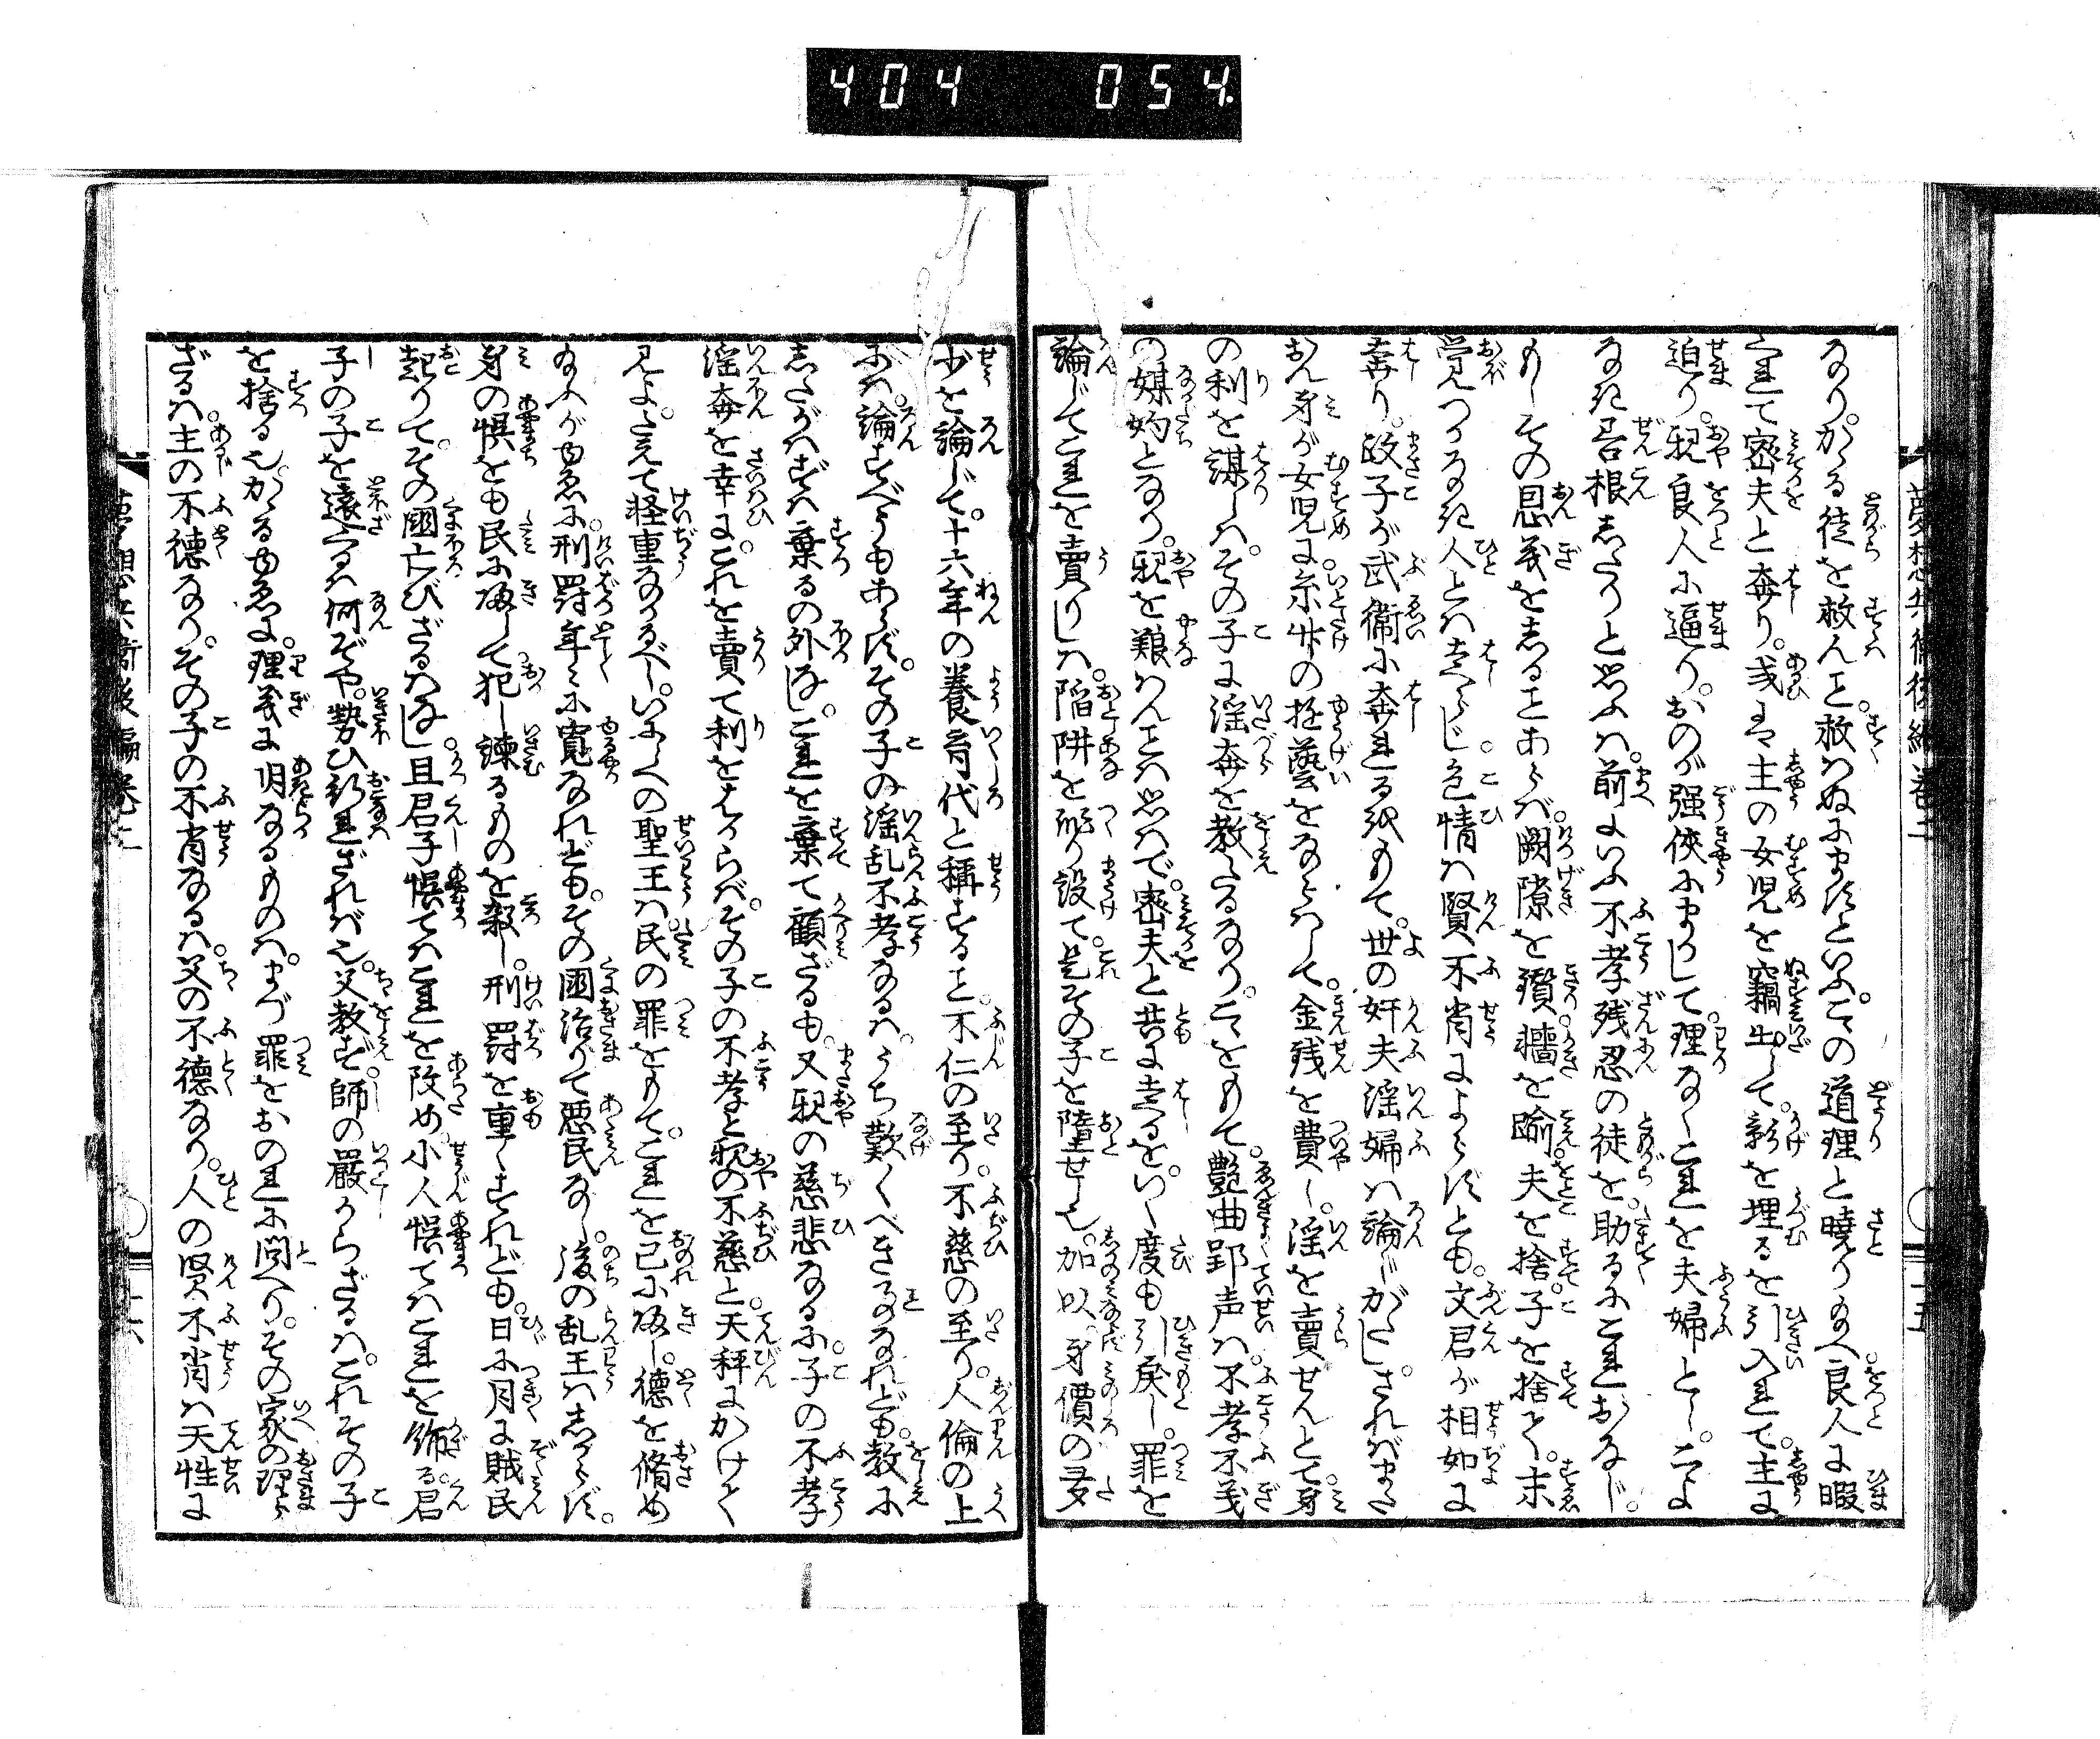 404 054
なり。かゝる徒を救んと。救はぬにますといふ。この道理と暁り給へ良人に暇
これて密夫と奔り。或は主の女児を竊出して。影を埋るを引入れて。主に
迫り。親良人に逼り。おのが強侠にまかして。理なくこれを夫婦とし。二よ
なき善根したりと思ふは。前にいふ不孝残忍の徒を。助るにこれおなじ。
もしその恩義をしることあらば。闕隙を鑽。牆を踰。夫を捨。子を捨て。末
覚つかなき人とは走らじ。色情は賢不肖によらずとも。文君が相如に
奔り。政子が武衛に奔れるをもて。世の奸夫淫婦は論じがたし。さればまた
おん身が女児に。糸竹の遊藝をならはして。金残を費し。淫を賣せんとて。身
の利を謀しは。その子に淫奔を教たるなり。こゝをもて。艶曲郢声は。不孝不義
の媒妁となり。親を艱はんとは思はで。密夫と共に走るを。いく度も引戻し。罪を
論じてこれを賣りしは。陥阱を造り設て。是その子を墮せし也。加以。身價の多
少を論じて。十六年の養育代と稱すること。不仁の至り。不慈の至り。人倫の上
には。論ずべうもあらず。その子の淫乱不孝なるは。うち歎くべきことなれども。教に
したがはずは棄るの外なし。これを棄て顧ざるも。又親の慈悲なるに。子の不孝
淫奔を幸に。これを賣て利をはからば。その子の不孝と親の不慈と。天秤にかけて
見よ。さて軽重なかるべし。いにしへの聖王は。民の罪をもて。これを己に帰し。徳を脩め
給ふが由ゑに。刑罰年々に寛なれども。その國治りて悪民なし。後の乱王はしからず。
身の惧をも民に帰して犯し。諫るものを殺し。刑罰を重くすれども。日に月に賊民
起りて。その國亡びざるはなし。且君子惧てはこれを改め。小人惧てはこれを飾る。君
子の子を遠ざくるは何ぞや。勢ひ行れざれば也。父教ず。師の嚴からざるは。これその子
を捨る也。かゝる由ゑに。理義に明なるものは。まづ罪をおのれに問へり。その家の理ら
ざるは。主の不徳なり。その子の不肖なるは。父の不徳なり。人の賢不肖は天性に
夢想兵衛後編巻二
十五
夢想兵衛後編巻二
十六